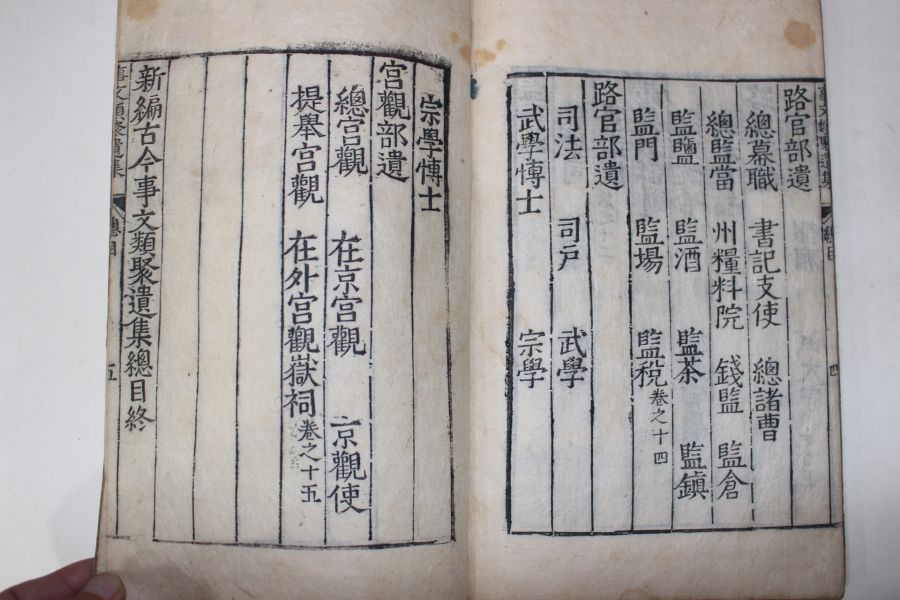 路官部遺
總幕職 書記支使 總諸曹
總監當 州糧料院 錢監 監倉
監鹽 監酒 監茶 監鎮
監門 監場 監稅 卷之十四
路官部遺
司法 司戶 武學
武學博士 宗學
四
宗學博士
宮觀部遺
總宮觀 在京宮觀 京觀使
提舉宮觀 在外宮觀嶽祠 卷之十五
新編古今事文類聚遺集總目終
事文類聚遺集 總目 五